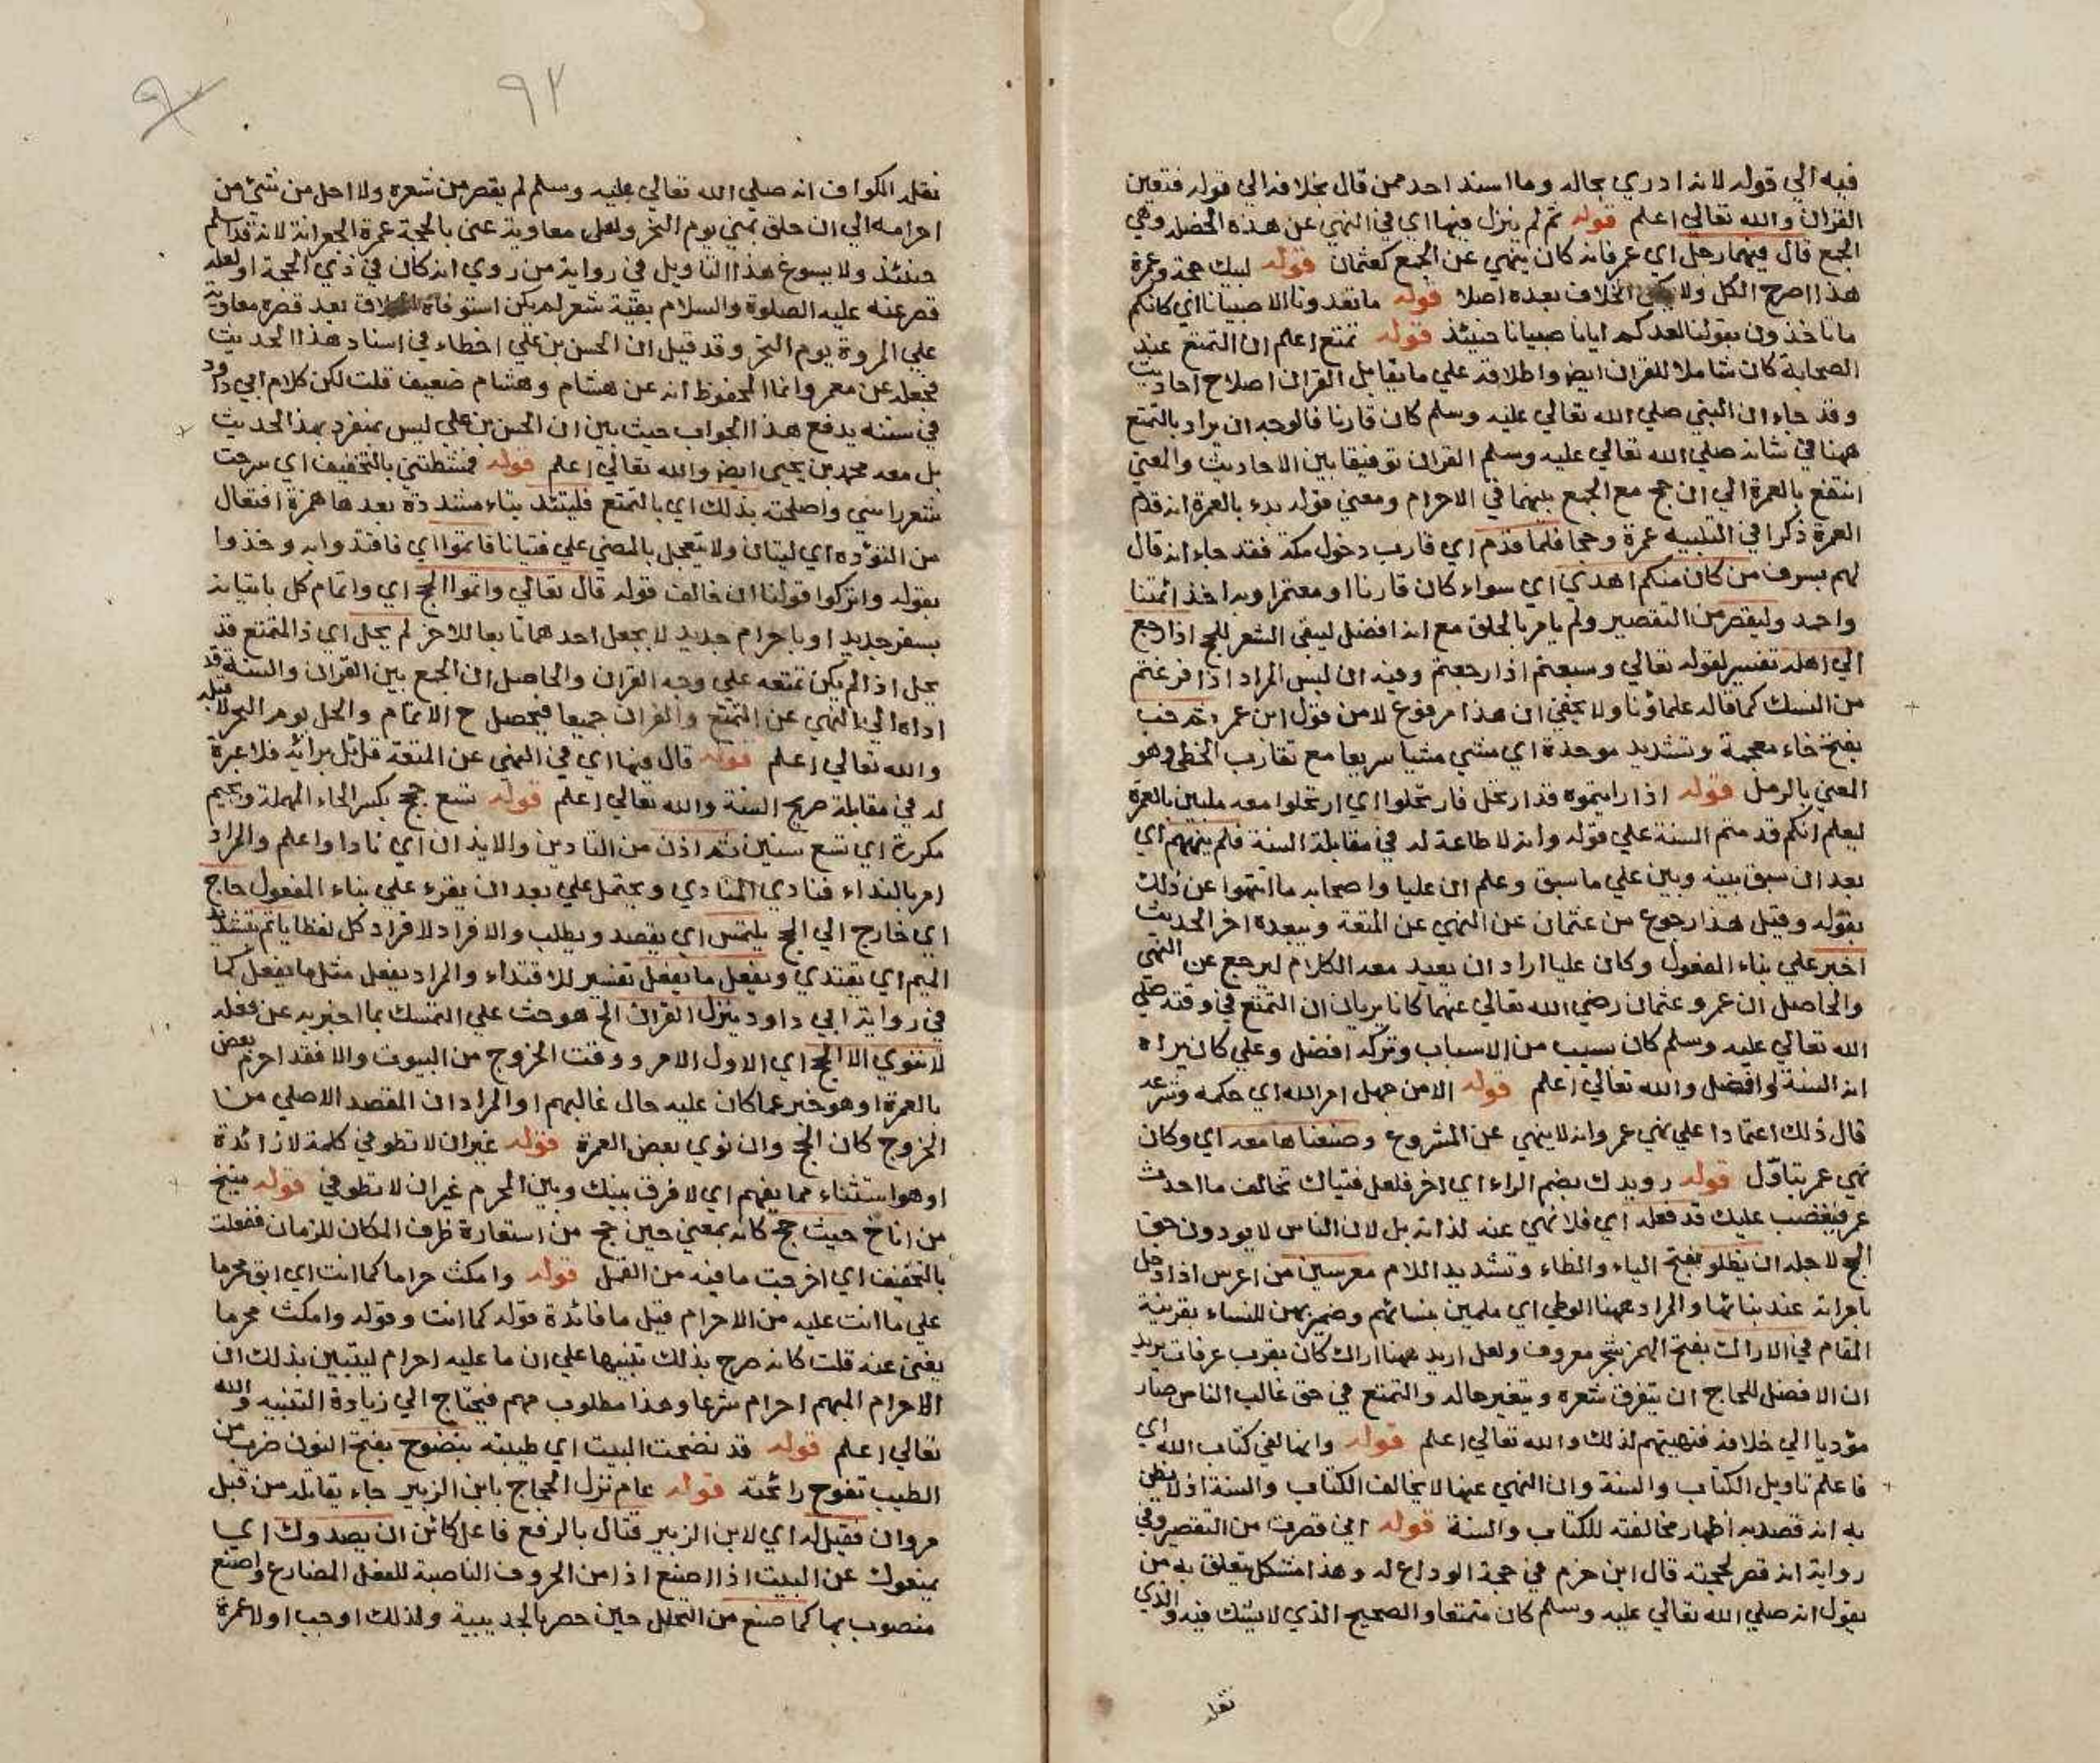 فيه الي قوله لانه ادري بحاله وما اسند احد ممن قال بخلافه الي قوله فتعين
القران والله تعالي اعلم قوله ثم لم ينزل فيها اي في النهي عن هذه الخصلة وهي
الجمع قال فيهما رجل اي عمر فانه كان ينهي عن الجمع كعثمان قوله لبيك حجة وعمرة
هذا اصرح الكل ولا الخلاف بعده اصلا قوله ما تعدونا الا صبيانا اي كانكم
ما تاخذون بقولنا لعدكم ايانا صبيانا حينئذ قوله تمتع اعلم ان التمتع عند
الصحابة كان شاملا للقران ايض واطلاقه علي ما يقابل القران اصلاح احاديث
وقد جاء ان النبي صلي الله تعالي عليه وسلم كان قارنا فالوجه ان يراد بالتمتع
ههنا في شانه صلي الله تعالي عليه وسلم القران توفيقا بين الاحاديث والمعني
انتفع بالعمرة الي ان حج مع الجمع بينهما في الاحرام ومعني قوله بدء بالعمرة انه قدم
العمرة ذكرا في التلبيه عمرة وحجا فلما قدم اي قارب دخول مكة فقد جاء انه قال
لهم بسرف من كان منكم اهدي اي سواء كان قارنا او معتمرا وبه اخذ ائمتنا
واحمد وليقصر من التقصير ولم يامر بالحلق مع انه افضل ليبقي الشعر للحج اذا رجع
الي اهله تفسير لقوله تعالي وسبعة اذا رجعتم وفيه ان ليس المراد اذا فرغتم
من النسك كما قاله علماؤنا ولا يخفي ان هذا مرفوع لا من قول ابن عمر ثم خب
بفتح خاء معجمة وتشديد موحدة اي مشي مشيا سريعا مع تقارب الخطي وهو
المعني بالرمل قوله اذا رايتموه قد ارتحل فارتحلوا اي ارتحلوا معه ملبين بالعمرة
ليعلم انكم قدمتم السنة علي قوله وانه لا طاعة له في مقابلة السنة فلم ينههم اي
بعد ان سبق بينه وبين علي ما سبق وعلم ان عليا واصحابه ما انتهوا عن ذلك
بقوله وقيل هذا رجوع من عثمان عن النهي عن المتعة ويبعده اخر الحديث
اخبر علي بناء المفعول وكان عليا اراد ان يعيد معه الكلام ليرجع عن النهي
والحاصل ان عمر وعثمان رضي الله تعالي عنهما كانا يريان ان التمتع في وقته صلي
الله تعالي عليه وسلم كان بسبب من الاسباب وتركه افضل وعلي كان يراه
انه السنة او افضل والله تعالي اعلم قوله الا من جهل امر الله اي حكمه وشرعه
قال ذلك اعتمادا علي نهي عمر وانه لا ينهي عن المشروع وصنعناها معه اي وكان
نهي عمر بتاول قوله رويدك بضم الراء اي اخر فلعل فتياك تخالف ما احدث
عمر فيغضب عليك قد فعله اي فلا نهي عنه لذاته بل لان الناس لا يودون حق
الحج لاجله ان يظلوا بفتح الياء والظاء وتشديد اللام معرسين من اعرس اذا دخل
بامراته عند بنائها والمراد ههنا الوطي اي ملمين بنسائهم وضمير بهن للنساء بقرينة
المقام في الاراك بفتح الهمز شجر معروف ولعل اريد ههنا اراك كان بقرب عرفات يريد
ان الافضل للحاج ان يتفرق شعره ويتغير حاله والتمتع في حق غالب الناس صار
مؤديا الي خلافه فنهيتهم لذلك والله تعالي اعلم قوله وانها لفي كتاب الله اي
فاعلم تاويل الكتاب والسنة وان النهي عنها لا يخالف الكتاب والسنة اذ لا يظن
به انه قصد به اظهار مخالفته للكتاب والسنة قوله اني قصرت من التقصير وفي
رواية انه قصر لحجته قال ابن حزم في حجة الوداع له وهذا مشكل يتعلق به من
يقول انه صلي الله تعالي عليه وسلم كان متمتعا والصحيح الذي لا يشك فيه والذي
نقله
٩٢
نقله الكواف انه صلي الله تعالي عليه وسلم لم يقصر من شعره ولا احل من شئ من
احرامه الي ان حلق بمني يوم النحر ولعل معاوية عني بالحجة عمرة الجعرانة لانه قد اسلم
حينئذ ولا يسوغ هذا التاويل في رواية من روي انه كان في ذي الحجة او لعله
قصر عنه عليه الصلوة والسلام بقية شعر لم يكن استوفاه الحلاق بعد قصره معاوية
علي المروة يوم النحر وقد قيل ان الحسن بن علي اخطاء في اسناد هذا الحديث
فجعله عن معمر وانما المحفوظ انه عن هشام وهشام ضعيف قلت لكن كلام ابي داود
في سننه يدفع هذا الجواب حيث بين ان الحسن بن علي ليس بمنفرد بهذا الحديث
بل معه محمد بن يحيي ايض والله تعالي اعلم قوله فمشطتني بالتخفيف اي سرحت
شعر راسي واصلحته بذلك اي بالتمتع فليتئد بتاء مشددة بعدها همزة افتعال
من التؤده اي ليتان ولا يتعجل بالمضي علي فتيانا فائتموا اي فاقتدوا به وخذوا
بقوله واتركوا قولنا ان خالف قوله قال تعالي واتموا الحج اي واتمام كل باتيانه
بسفر جديد او باحرام جديد لا بجعل احدهما تابعا للاخر لم يحل اي ذا المتمتع قد
يحل اذا لم يكن تمتعه علي وجه القران والحاصل ان الجمع بين القران والسنة قد
اداه الي النهي عن التمتع والقران جميعا فيحصل ح الاتمام والحل يوم النحر لا قبله
والله تعالي اعلم قوله قال فيها اي في النهي عن المتعة قائل برايه فلا عبرة
له في مقابلة صريح السنة والله تعالي اعلم قوله تسع حجج بكسر الحاء المهملة وجيم
مكررة اي تسع سنين ثم اذن من التادين والايذان اي نادا واعلم والمراد
امر بالنداء فنادي المنادي ويحتمل علي بعد ان يقرء علي بناء المفعول حاج
اي خارج الي الحج يلتمس اي يقصد ويطلب والافراد لافراد كل لفظا ياتم بتشديد
الميم اي يقتدي ويفعل ما يفعل تفسير للاقتداء والمراد يفعل مثل ما يفعل كما
في رواية ابي داود ينزل القران الخ هو حث علي التمسك بما اخبر به عن فعله
لا ننوي الا الحج اي الاول الامر ووقت الخروج من البيوت والا فقد احرم بعض
بالعمرة او هو خبر عما كان عليه حال غالبهم او المراد ان المقصد الاصلي من
الخروج كان الحج وان نوي بعض العمرة قوله غير ان لا تطوفي كلمة لا زائدة
او هو استثناء مما يفهم اي لا فرق بينك وبين المحرم غير ان لا تطوفي قوله منيخ
من اناخ حيث حج كانه بمعني حين حج من استعارة ظرف المكان للزمان ففعلت
بالتخفيف اي اخرجت ما فيه من القمل قوله وامكث حراما كما انت اي ابق محرما
علي ما انت عليه من الاحرام قيل ما فائدة قوله كما انت وقوله وامكث محرما
يغني عنه قلت كانه صرح بذلك تنبيها علي ان ما عليه احرام ليتبين بذلك ان
الاحرام المبهم احرام شرعا وهذا مطلوب مهم فيحتاج الي زيادة التنبيه والله
تعالي اعلم قوله قد نضحت البيت اي طيبته بنضوح بفتح النون ضرب من
الطيب تفوح رائحته قوله عام نزل الحجاج بابن الزبير جاء يقاتله من قبل
مروان فقيل له اي لابن الزبير قتال بالرفع فاعل كائن ان يصدوك اي
يمنعوك عن البيت اذا اصنع اذا من الحروف الناصبة للفعل المضارع واصنع
منصوب بها كما صنع من التحلل حين حصر بالحديبية ولذلك اوجب اولا عمرة